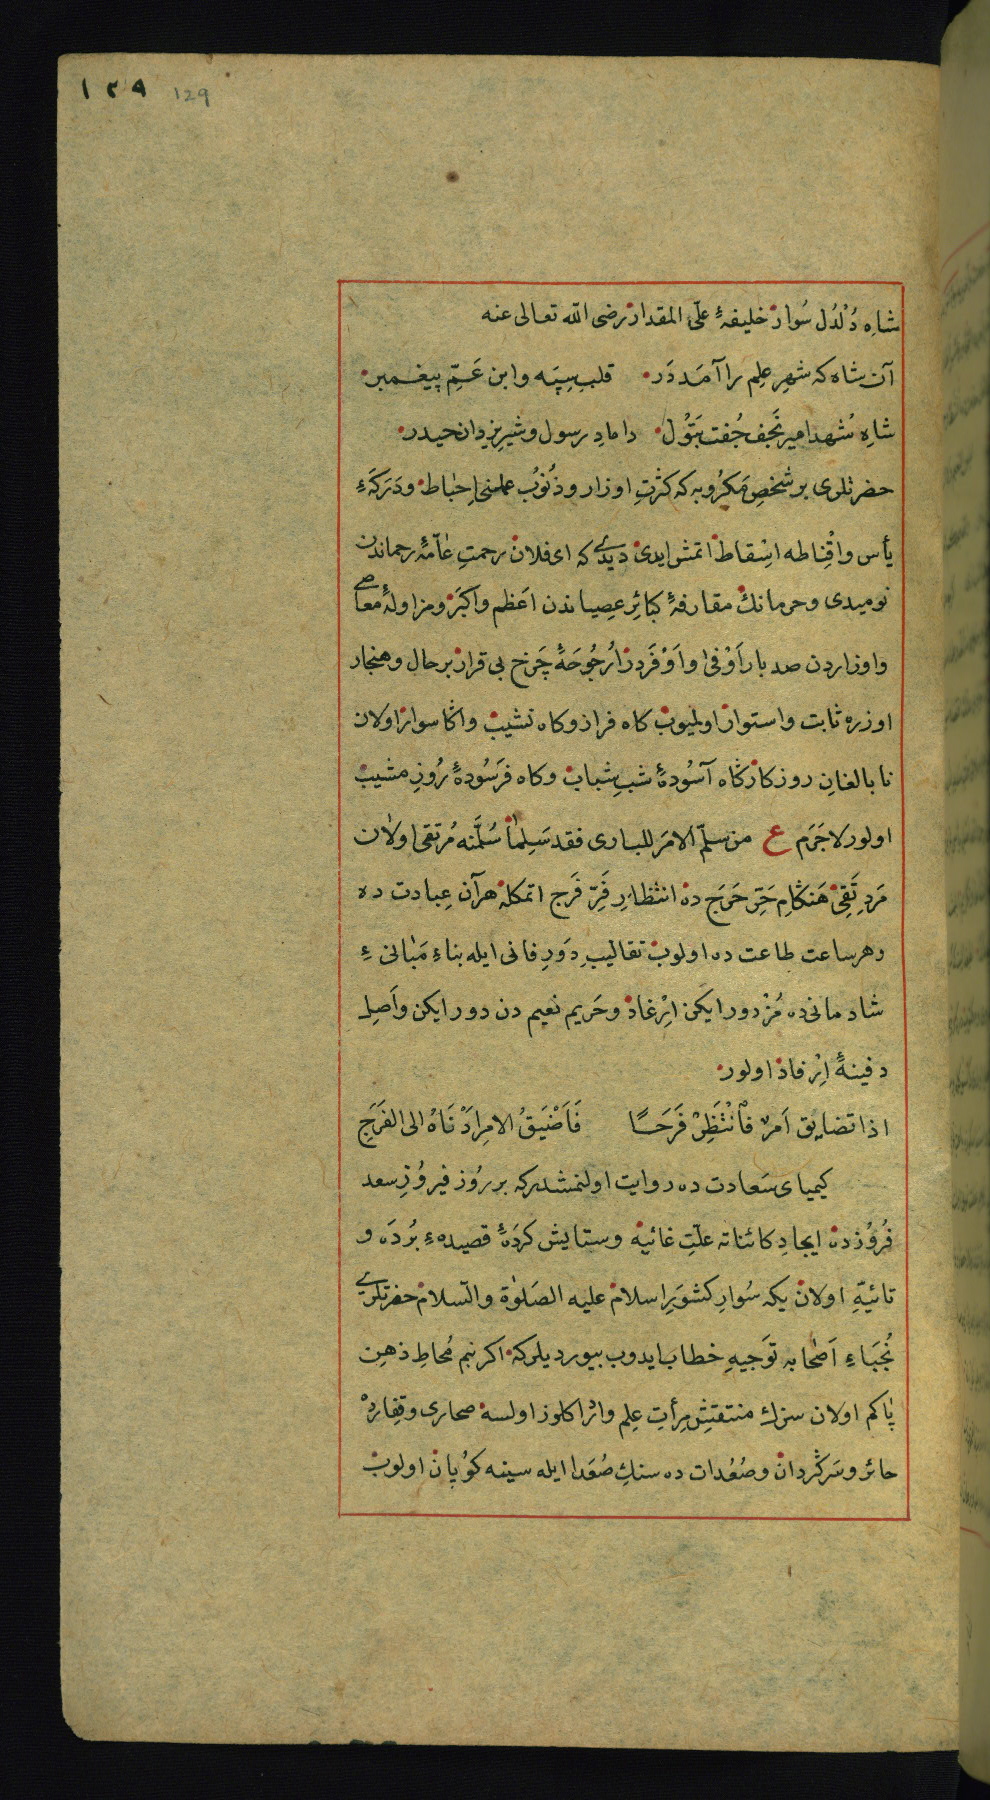 ١٢٩ 129
شاهِ دُلْدُل سُوار خليفهٔ علىّ المقدار رضى الله تعالى عنه
آن شاه كه شهرِ علِم را آمَد دَر قلبِ سِپَه وابن عَمِّ پيغمبر
شاهِ شُهدا مير نَجف جُفت بَتُول دامادِ رسول وشيرِ يزدان حيدر
حضرتلرى بر شخصِ مَكرُوبه كه كثرتِ اوزار وذُنوُب عملنى اِحباط ودَرَكهَءِ
يأس واقْنِاطه اسِْقاط اتمش ايدى ديدے كه اى فلان رحمتِ عاٰمّهٔ رحماندن
نوميدى وحرمانك مقارفهٔ كبائِرِ عصياندن اَعظم واكبَر ومزاولهٔ معاصے
واوزاردن صد بار اَوْفىٰ واَوْفَردِر اُرجُوحَهٔ چَرخ بى قرار بر حال وهنجار
اوزره ثابت واستوار اولميوب كاه فراز وكاه نشيب واڭا سوار اولان
نابالغانِ روزكار كاه آسُودهٔ شبِ شباب وكاه فَرسُودهٔ رُوزِ مشيب
اولور لاجَرَم ع من سلّم الامَر للبارى فقد سَلِماً سُلَّمنه مُرتقى اولان
مَردِ تَقِىّ هَنڭامِ حَتِّ حَرَج ده انتظارِ فَرِّ فَرج اتمكله هرآن عِبادت ده
وهر ساعت طاعت ده اولوب تقاليبِ دَورِ فانى ايله بناءِ مَبانىءِ
شادمانى ده مُزْدور ايكن اِرْغاد وحَريم نعيم دن دور ايكن واَصِلِ
دفينهٔ اِرْفاد اولور
اذا تضايق اَمر فاْنْتَظِرْ فَرَحًا فَاَضْيَقُ الامرِ اَدْنَاهُ الى الفَرَجِ
كيمياى سَعادت ده روايت اولنمشدر كه بر رُوز فيروُزِ سعد
فُروُزده ايجادِ كائناته علّتِ غائيه وستايش كردَهٔ قصيدهءِ بُردَه و
تائيّهِ اولان يكه سُوارِ كشوَرِ اسلام عليه الصَلوٰة والسّلام حضرتلرے
نُجَباءِ اَصحابه تَوجيهِ خطاب ايدوب بيورديلر كه اكر نم مُحاطِ ذهِن
پاٰكم اولان سزك منتقشِ مِرأتِ علِم وادراكلوز اولسه صحارى وقِفارده
حائر وسَرڭردان وصُعُدات ده سنكِ صُعَدا ايله سينه كوُبان اولوب